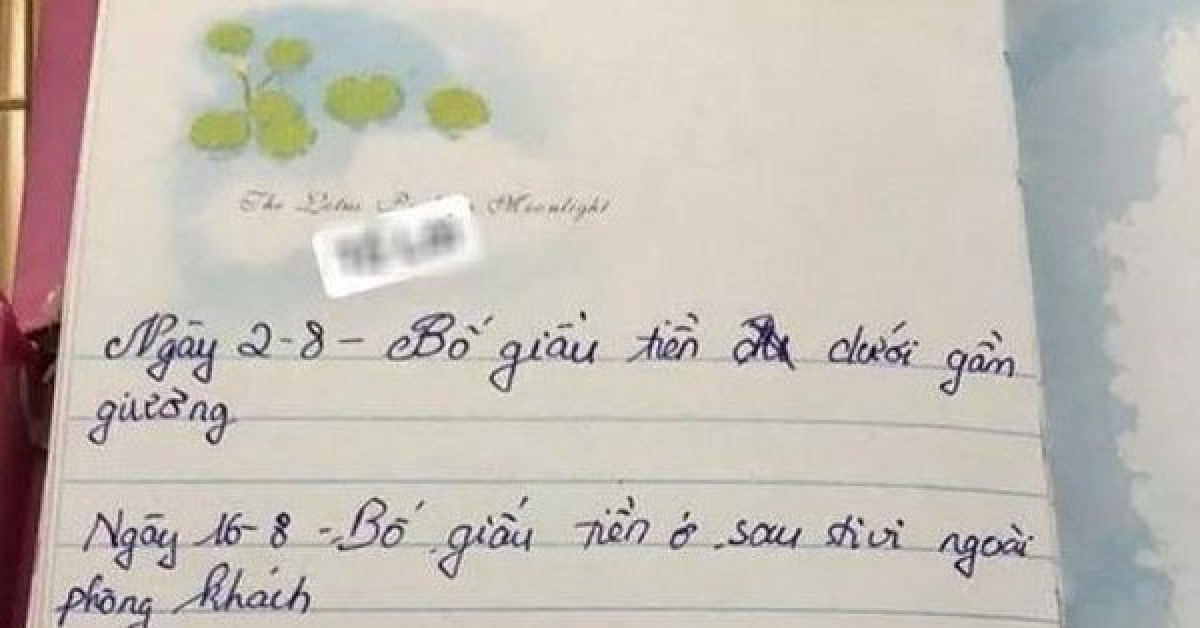 The Lotus Moonlight
Ngày 2-8 - Bố giấu tiền dưới gầm
giường
Ngày 16-8 - Bố giấu tiền ở sau tivi ngoài
phòng khách